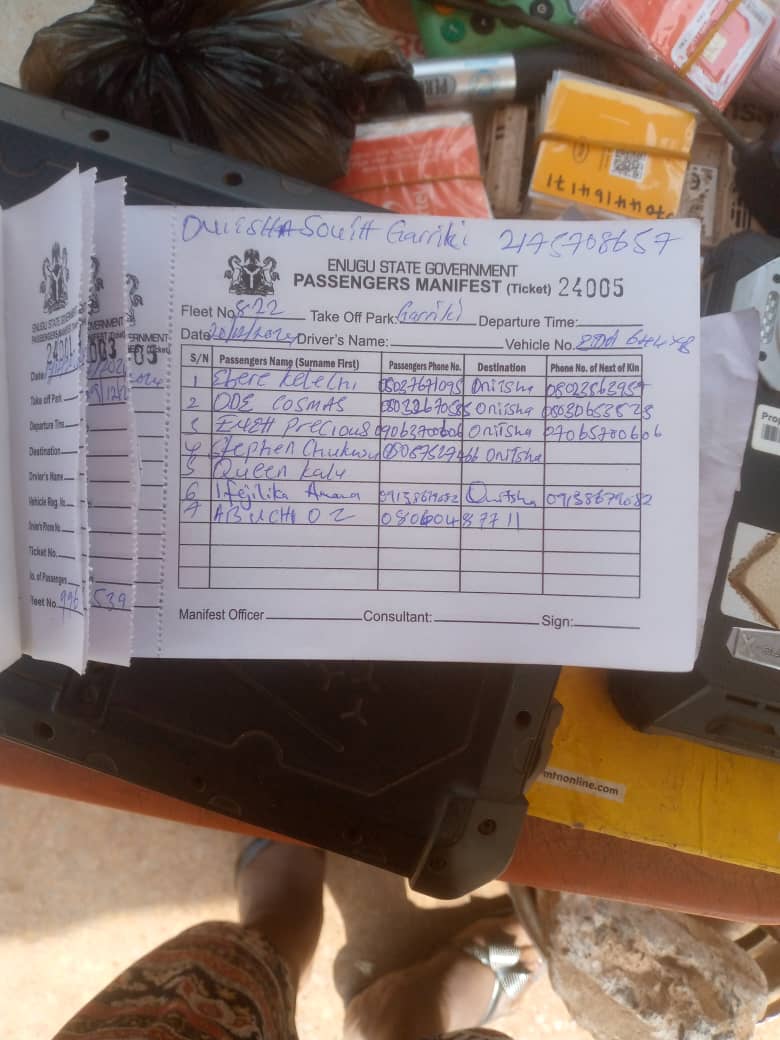 ONITSHA SOUTH Garriki 2175708657
ENUGU STATE GOVERNMENT
PASSENGERS MANIFEST (Ticket) 24005
Fleet No 822 Take Off Park: Garriki Departure Time:
Date 20/12/2024 Driver's Name: Vehicle No.
S/N Passengers Name (Surname First) Passengers Phone No. Destination Phone No. of Next of Kin
1 Ebere Kelechi 08027671095 Onitsha
2 ODE COSMAS Onitsha
3 Precious 09063700606 Onitsha 07065700606
4 Stephen Chukwu Onitsha
5 Queen Kalu
6 Ifejilika Amara 09138679082 Onitsha 09138679082
7 08060487711
Manifest Officer Consultant: Sign:
ENUGU STATE GOVERNMENT
Date
Take off Park
Departure Time
Destination
Driver's Name
Vehicle Reg. No
Driver's Phone No
Ticket No.
No. of Passengers
Fleet No 996 539
mtnonline.com